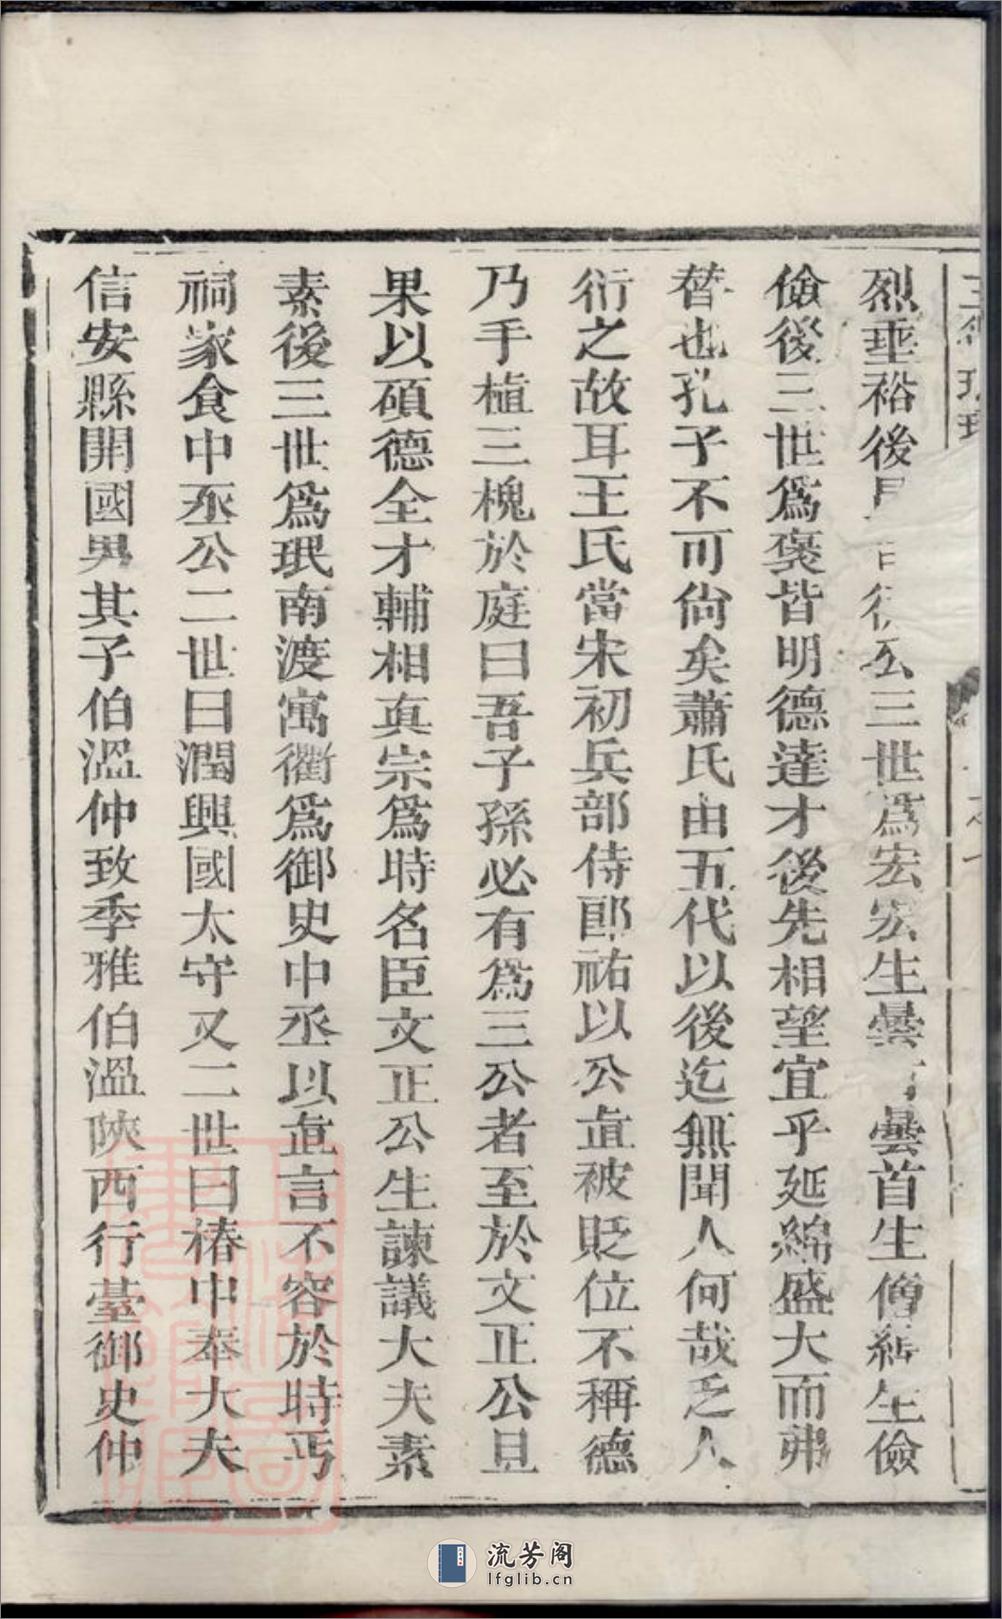 烈垂裕後公三世爲宏宏生曇首曇首生僧綽生儉
儉後三世爲褒皆明德達才後先相望宜乎延綿盛大而弗
替也孔子不可尙矣蕭氏由五代以後迄無聞人何哉乏人
衍之故耳王氏當宋初兵部侍郎祐以公直被貶位不稱德
乃手植三槐於庭曰吾子孫必有爲三公者至於文正公旦
果以碩德全才輔相真宗爲時名臣文正公生諫議大夫素
素後三世爲珉南渡寓衢爲御史中丞以直言不容於時丐
祠家食中丞公二世曰潤興國太守又二世曰椿中奉大夫
信安縣開國男其子伯溫仲致季雅伯溫陝西行臺御史仲
流芳阁
lfglib.cn